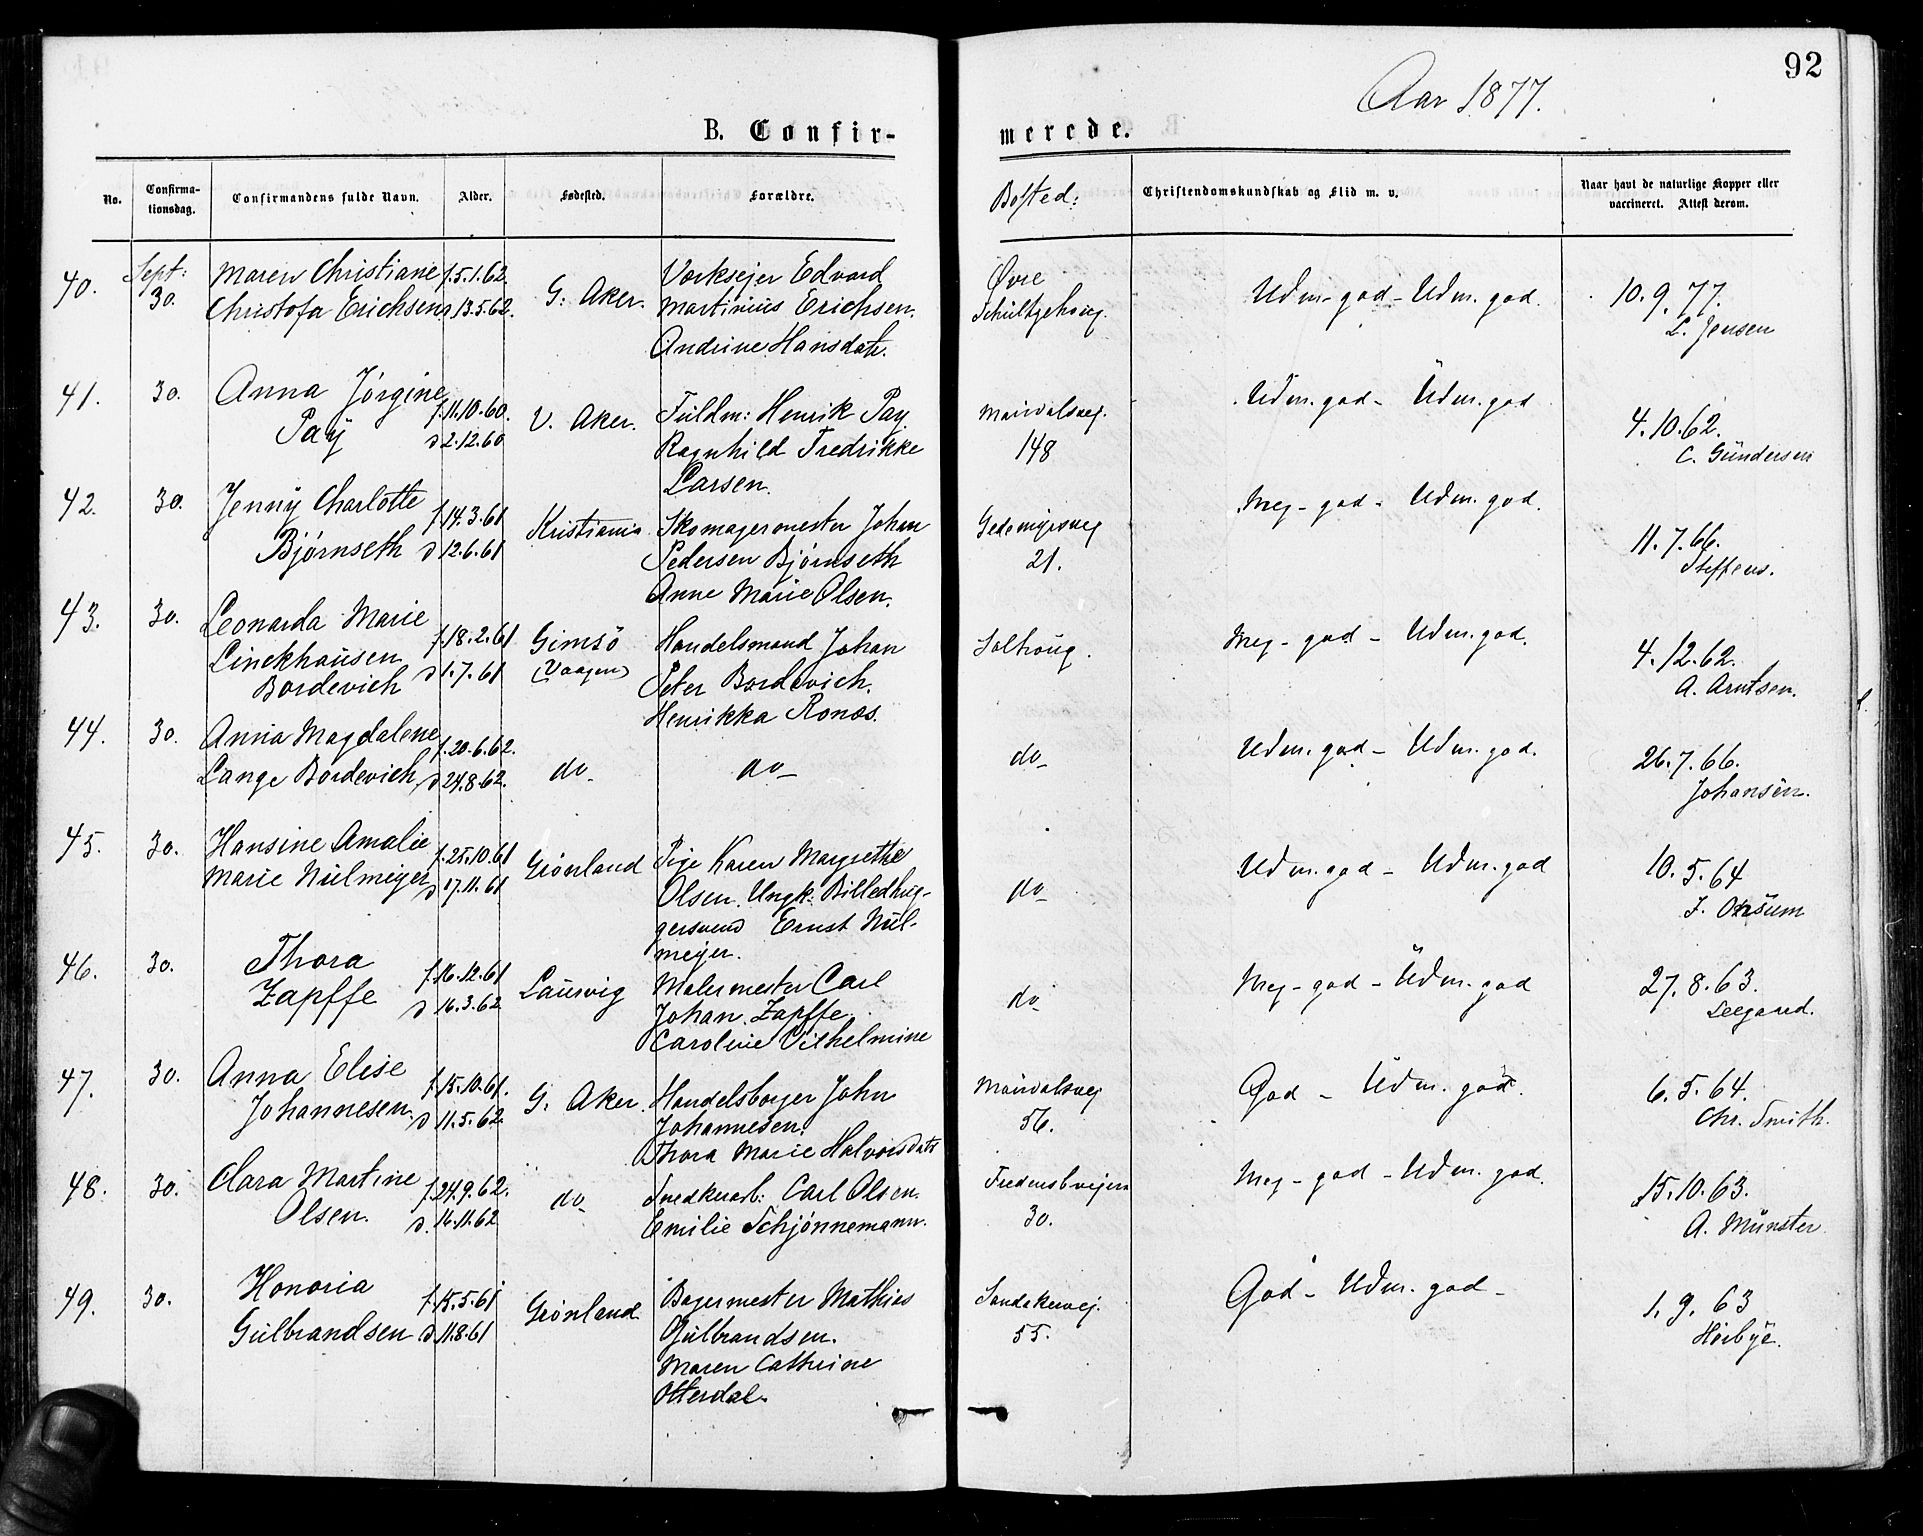 92
Aar 1877.
B. Confir-
merede.
No.
Confirma-
tionsdag.
Confirmandens fulde Navn.
Alder.
Fødested.
Forældre.
Bosted:
Christendomskundskab og Flid m. v.
Naar havt de naturlige Kopper eller
vaccineret. Attest derom.
40. Sept: 30. Maren Christiane f. 5.1.62. G. Aker. Vorksejer Edvard Øvre Udm. god - Udm. god. 10.9.77.
Christofa Erichsen d. 13.5.62. Martinius Erichsen. Schultzehaug. L. Jensen
Andrine Hansdatr.
41. 30. Anna Jørgine f. 11.10.60. V. Aker. Fuldm: Henrik Pay. Maridalsvej. Udm. god - Udm. god 4.10.62.
Pay d 2.12.60 Ragnhild Fredrikke 148 C. Gundersen
Larsen.
42. 30. Jenny Charlotte f. 14.3.61 Kristiania Skomagermester Johan Meg - god - Udm. god. 11.7.66.
Bjørnseth d 12.6.61 Pedersen Bjørnseth 21. Steffens.
Anne Marie Olsen.
43. 30. Leonarda Marie f. 18.2.61 Gimsö Handelsmand Johan Solhoug. Meg - god - Udm. god. 4.12.62.
Linckhausen d 1.7.61 (Vaagen) Peter Bordevich. A. Arntsen.
Bordevich Henrikka Rones.
44. 30. Anna Magdalene f. 20.6.62. do do do Udm. god - Udm. god. 26.7.66.
Lange Bordevich d 24.8.62. Johansen.
45. 30. Hansine Amalie f. 25.10.61 Grønland Pige Karen Margrethe do Udm. god - Udm. god 10.5.64
Marie Nulmeyer d 17.11.61 Olsen. Ungk: Billedhug-
gersvend Ernst Nul-
meyer.
46. 30. Thora f. 16.12.61 Laurvig Malermester Carl do Meg - god - Udm. god 27.8.63.
Zapffe d 16.3.62 Johan Zapffe.
Caroline Vilhelmine
47. 30. Anna Elise f. 15.10.61. G. Aker. Handelsborger John Maridalsvej God - Udm. god. 6.5.64.
Johannesen. d 11.5.62. Johannesen. 56. Chr. Smith.
Thora Marie Halvorsdatr
48. 30. Clara Martine f. 24.9.62. do Snedkerarb: Carl Olsen. Meg - god - Udm. god. 15.10.63.
Olsen. d. 16.11.62 Emilie Schjønnemann. 30. A. Münster
49. 30. Honoria f. 15.5.61 Grønland Bagermester Mathias Sandakervej. God - Udm. god - 1.9.63
Gulbrandsen d 11.8.61 Gulbrandsen. 55. Hørbye.
Maren Cathrine
Otterdal.